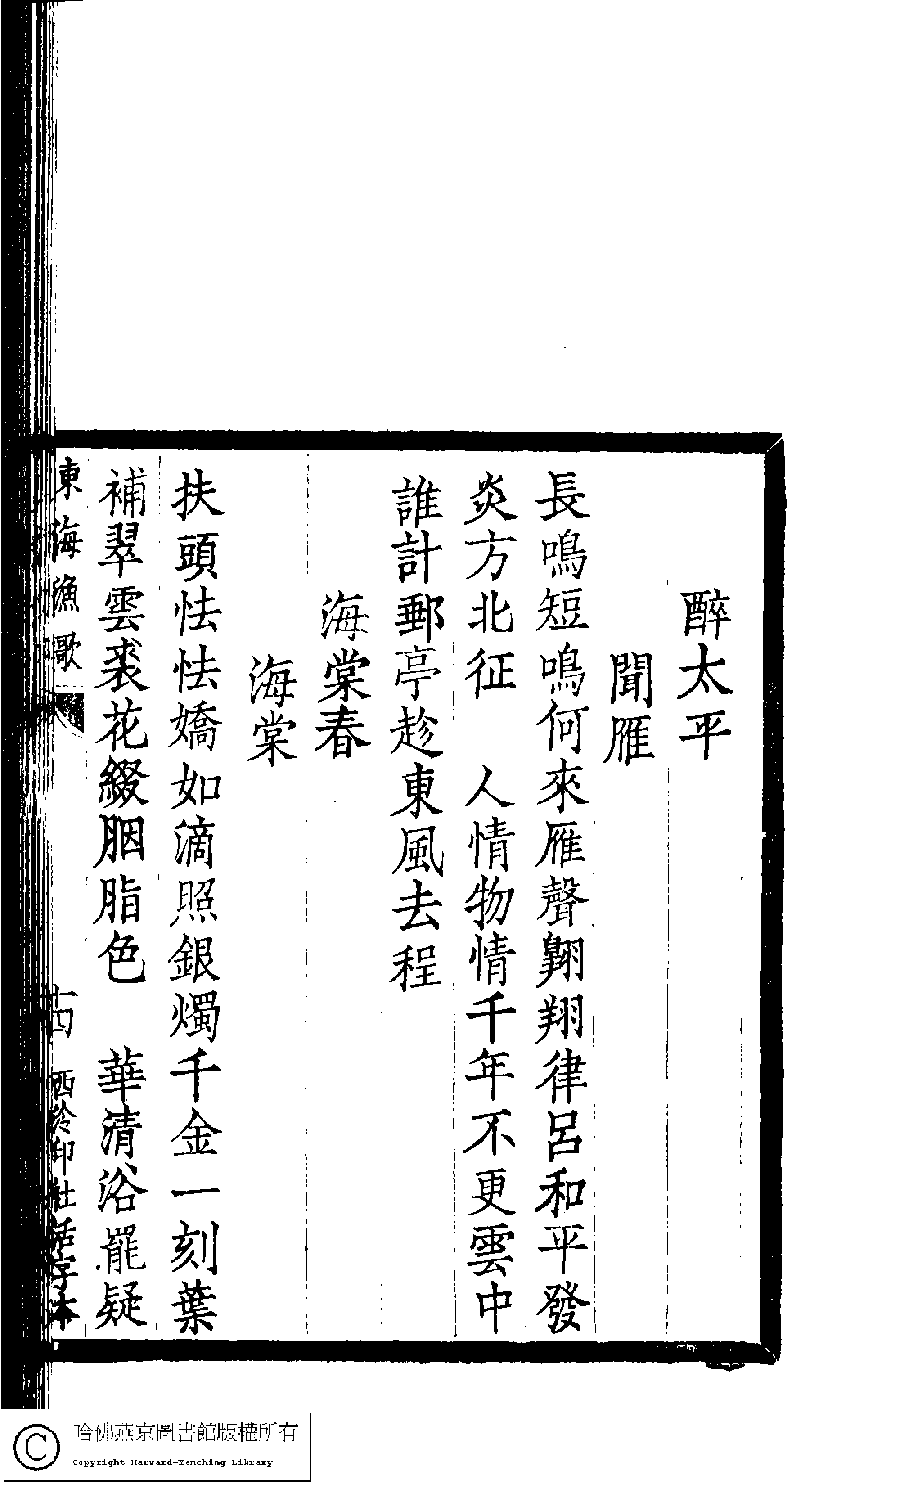 醉太平
聞雁
長鳴短鳴何來雁聲翺翔律呂和平發
炎方北征　人情物情千年不更雲中
誰計郵亭趁東風去程
海棠春
海棠
扶頭怯怯嬌如滴照銀燭千金一刻葉
補翠雲裘花綴胭脂色　華清浴罷疑
東海漁歌
十四　西泠印社活字本
哈佛燕京圖書館版權所有
Copyright Harvard-Yenching Library